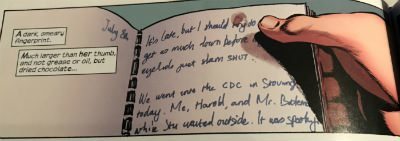 A dark, smeary fingerprint.
Much larger than her thumb, and not grease or oil, but dried chocolate...
July 8th
It's late, but I should try do
get so much down before
eyelids just slam SHUT.
We went over the CDC in Stovington
today. Me, Harold, and Mr. Bateman
while Stu waited outside. It was spooky